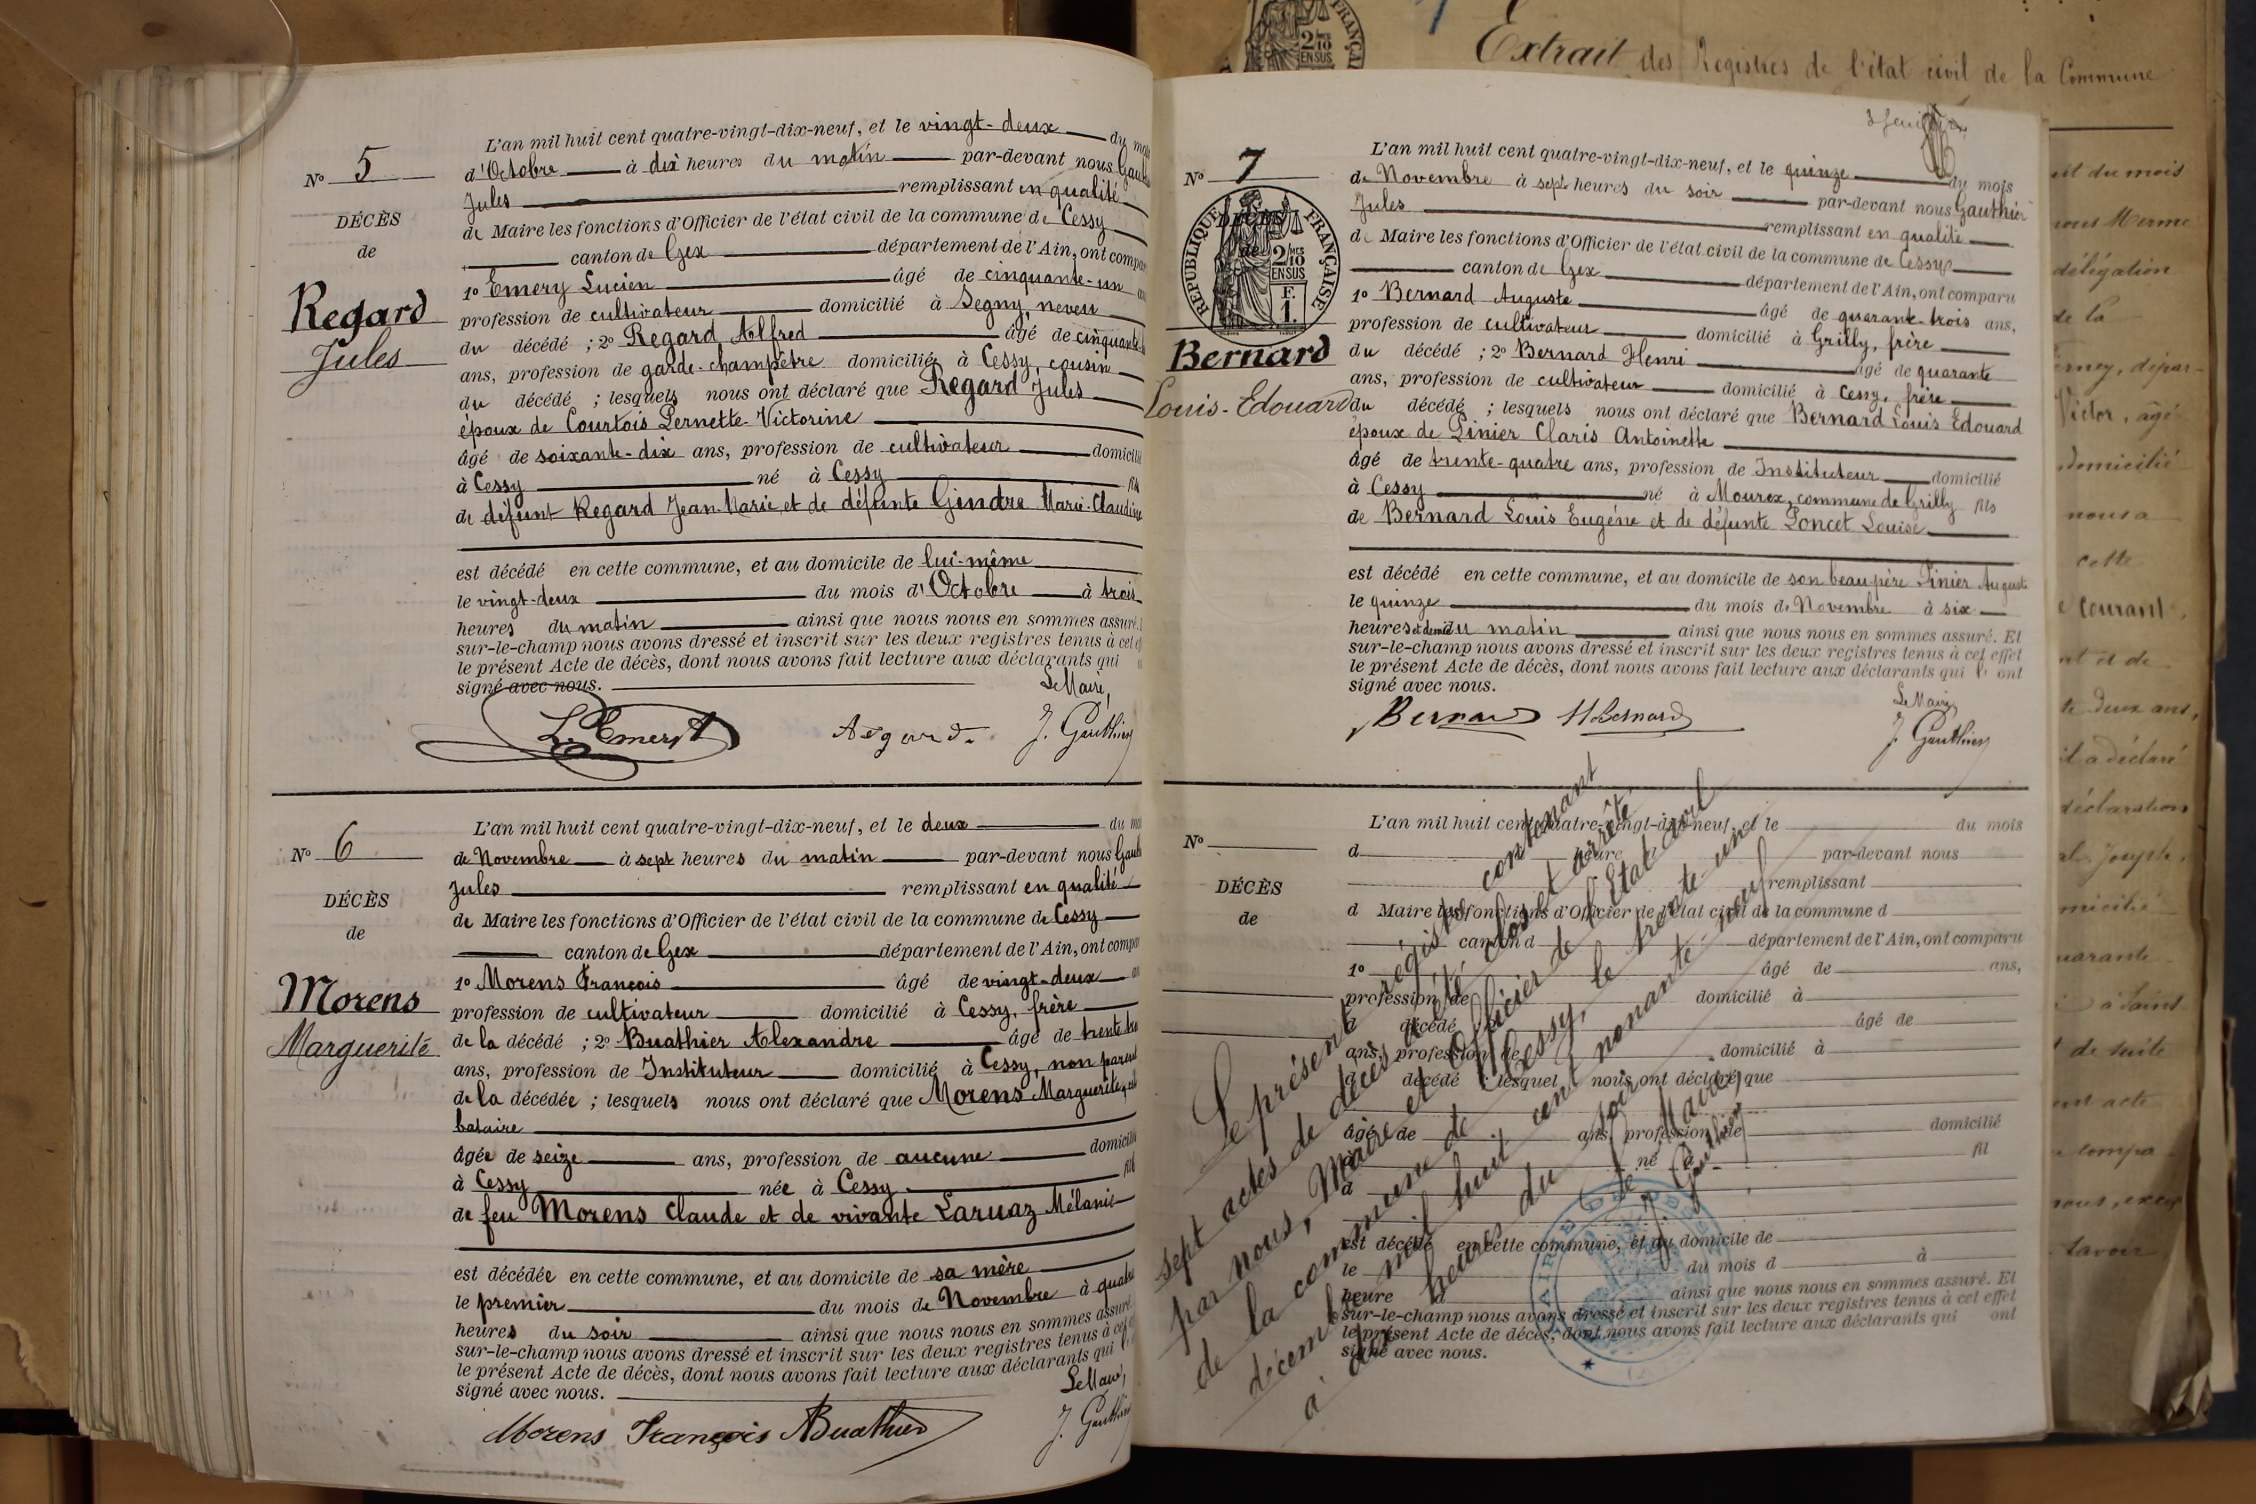 N° 5
DÉCÈS
de
Regard
Jules
L'an mil huit cent quatre-vingt-dix-neuf, et le vingt-deux du mois
d'Octobre à dix heures du matin par-devant nous
Jules remplissant en qualité
de Maire les fonctions d'Officier de l'état civil de la commune de Cessy
canton de Gex département de l'Ain, ont compa
1° Emery Lucien âgé de cinquante-un
profession de cultivateur domicilié à Segny, neveu
du décédé ; 2° Regard Alfred âgé de cinquante
ans, profession de garde-champêtre domiciliés à Cessy, cousin
du décédé ; lesquels nous ont déclaré que Regard Jules
époux de Courtois Pernette-Victorine
âgé de soixante-dix ans, profession de cultivateur domicilié
à Cessy né à Cessy fils
de défunt Regard Jean-Marie et de défunte Gindre Marie-Claudine
est décédé en cette commune, et au domicile de lui-même
le vingt-deux du mois d'Octobre à trois
heures du matin ainsi que nous nous en sommes assuré.
sur-le-champ nous avons dressé et inscrit sur les deux registres tenus à cet
le présent Acte de décès, dont nous avons fait lecture aux déclarants qui
signé avec nous.
Le Maire,
L. Emery Regard J. Gauthier
N° 6
DÉCÈS
de
Morens
Marguerite
L'an mil huit cent quatre-vingt-dix-neuf, et le deux du
de Novembre à sept heures du matin par-devant nous
Jules remplissant en qualité
de Maire les fonctions d'Officier de l'état civil de la commune de Cessy
canton de Gex département de l'Ain, ont compa
1° Morens François âgé de vingt-deux
profession de cultivateur domicilié à Cessy, frère
de la décédé ; 2° Buathier Alexandre âgé de trente
ans, profession de Instituteur domicilié à Cessy, non parent
de la décédée ; lesquels nous ont déclaré que Morens Marguerite
bataire
âgée de seize ans, profession de aucune domicilié
à Cessy née à Cessy fil
de feu Morens Claude et de vivante Laruaz Mélanie
est décédée en cette commune, et au domicile de sa mère
le premier du mois de Novembre à quatre
heures du soir ainsi que nous nous en sommes assuré.
sur-le-champ nous avons dressé et inscrit sur les deux registres tenus à cet
le présent Acte de décès, dont nous avons fait lecture aux déclarants qui
signé avec nous.
Le Maire,
Morens François ABuathier J. Gauthier
Extrait des Registres de l'état civil de la Commune
N° 7
DÉCÈS
de
RÉPUBLIQUE FRANÇAISE
2/10
MES
EN SUS
F.
1.
Bernard
Louis-Edouard
L'an mil huit cent quatre-vingt-dix-neuf, et le quinze du mois
de Novembre à sept heures du soir par-devant nous Gauthier
Jules remplissant en qualité
de Maire les fonctions d'Officier de l'état civil de la commune de Cessy
canton de Gex département de l'Ain, ont comparu
1° Bernard Auguste âgé de quarante-trois ans,
profession de cultivateur domicilié à Grilly, frère
du décédé ; 2° Bernard Henri âgé de quarante
ans, profession de cultivateur domicilié à Cessy, frère
du décédé ; lesquels nous ont déclaré que Bernard Louis Edouard
époux de Pinier Claris Antoinette
âgé de trente-quatre ans, profession de Instituteur domicilié
à Cessy né à Mourex, commune de Grilly fils
de Bernard Louis Eugène et de défunte Poncet Louise
est décédé en cette commune, et au domicile de son beau père Pinier Auguste
le quinze du mois de Novembre à six
heures et demie du matin ainsi que nous nous en sommes assuré. Et
sur-le-champ nous avons dressé et inscrit sur les deux registres tenus à cet effet
le présent Acte de décès, dont nous avons fait lecture aux déclarants qui ont
signé avec nous.
Le Maire
Bernard HBernard J. Gauthier
N°
DÉCÈS
de
L'an mil huit cent quatre-vingt-dix-neuf, et le du mois
d heure par-devant nous
remplissant
d Maire les fonctions d'Officier de l'état civil de la commune d
canton d département de l'Ain, ont comparu
1° âgé de ans,
profession de domicilié à
d décédé âgé de
ans, profession de domicilié à
d décédé ; lesquel nous ont déclaré que
âgé de ans, profession de domicilié
à né à fil
d
est décédé en cette commune, et au domicile de
le du mois d à
heure d ainsi que nous nous en sommes assuré. Et
sur-le-champ nous avons dressé et inscrit sur les deux registres tenus à cet effet
le présent Acte de décès, dont nous avons fait lecture aux déclarants qui ont
signé avec nous.
Le présent registre contenant
sept actes de décès a été clos et arrêté
par nous, Maire et Officier de l'Etat-civil
de la commune de Cessy, le trente un
décembre mil huit cent nonante neuf
à dix heures du soir.
Le Maire,
J. Gauthier
MAIRIE